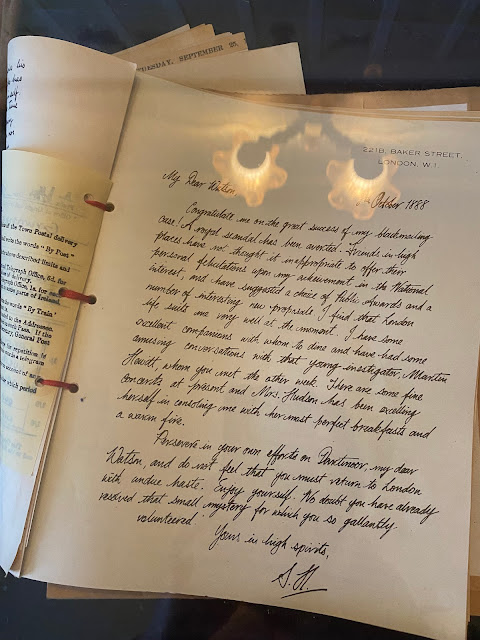 TUESDAY, SEPTEMBER 25,
221B, BAKER STREET,
LONDON, W.1.
My Dear Watson,
October 1888
Congratulate me on the great success of my blackmailing
case! A royal scandal has been averted. Friends in high
places have not thought it inappropriate to offer their
personal felicitations upon my achievement in the National
interest, and have suggested a choice of Public Awards and a
number of interesting new proposals. I find that London
life suits me very well at the moment. I have some
excellent companions with whom to dine and have had some
amusing conversations with that young investigator, Martin
Hewitt, whom you met the other week. There are some fine
concerts at present and Mrs. Hudson has been excelling
herself in consoling me with her most perfect breakfasts and
a warm fire.
Persevere in your own efforts on Dartmoor, my dear
Watson, and do not feel that you must return to London
with undue haste. Enjoy yourself. No doubt you have already
resolved that small mystery for which you so gallantly
volunteered!
Yours in high spirits,
S. H.
and the Town Postal delivery
the words "By Post"
above described limits and
Telegraph Office, 6d. for
of delivery.
Telegraph Office, 1s. for each
parts of Ireland.
the words "By Train"
to the Addressee.
General Post
for repetition is
which period